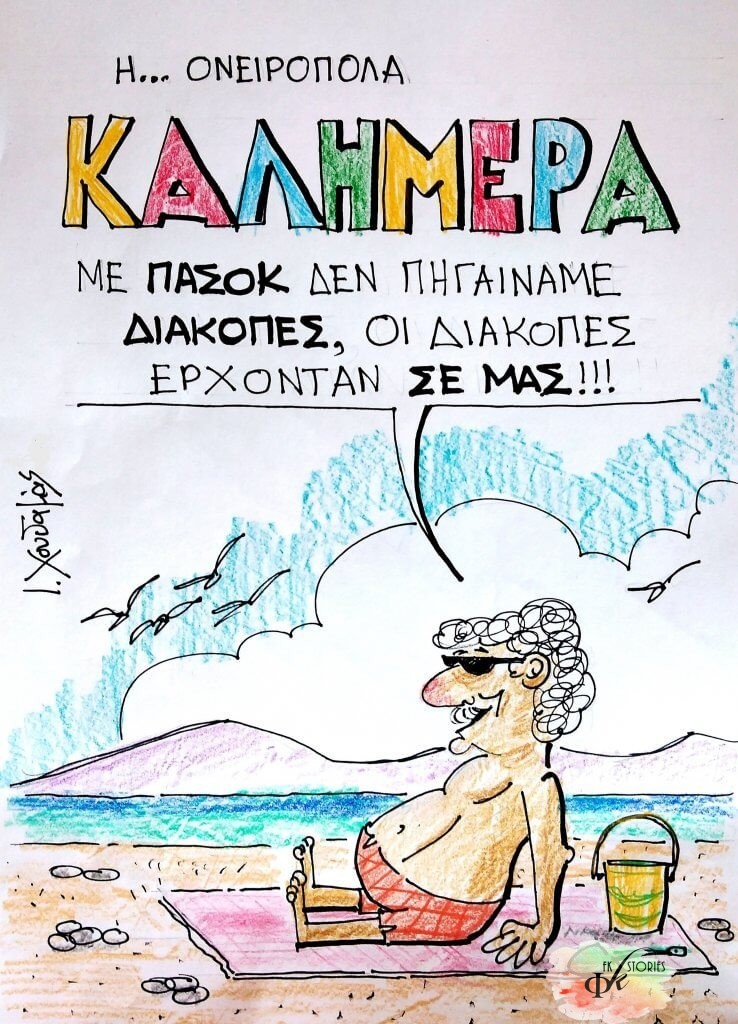 Η... ΟΝΕΙΡΟΠΟΛΑ
ΚΑΛΗΜΕΡΑ
ΜΕ ΠΑΣΟΚ ΔΕΝ ΠΗΓΑΙΝΑΜΕ
ΔΙΑΚΟΠΕΣ, ΟΙ ΔΙΑΚΟΠΕΣ
ΕΡΧΟΝΤΑΝ ΣΕ ΜΑΣ!!!
Ι. Χουδαλάς
FK STORIES